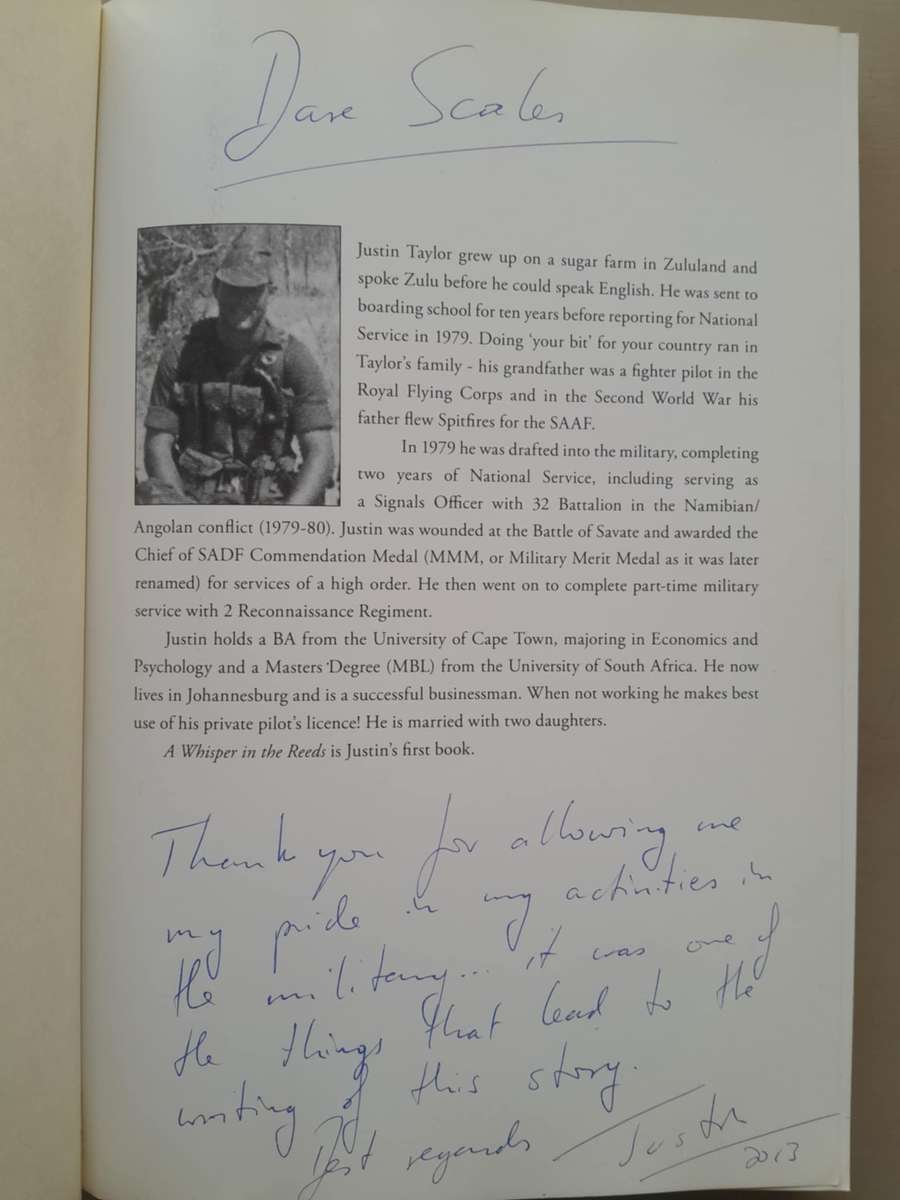 Dave Scales
Justin Taylor grew up on a sugar farm in Zululand and
spoke Zulu before he could speak English. He was sent to
boarding school for ten years before reporting for National
Service in 1979. Doing ‘your bit’ for your country ran in
Taylor’s family - his grandfather was a fighter pilot in the
Royal Flying Corps and in the Second World War his
father flew Spitfires for the SAAF.
In 1979 he was drafted into the military, completing
two years of National Service, including serving as
a Signals Officer with 32 Battalion in the Namibian/
Angolan conflict (1979-80). Justin was wounded at the Battle of Savate and awarded the
Chief of SADF Commendation Medal (MMM, or Military Merit Medal as it was later
renamed) for services of a high order. He then went on to complete part-time military
service with 2 Reconnaissance Regiment.
Justin holds a BA from the University of Cape Town, majoring in Economics and
Psychology and a Masters Degree (MBL) from the University of South Africa. He now
lives in Johannesburg and is a successful businessman. When not working he makes best
use of his private pilot’s licence! He is married with two daughters.
A Whisper in the Reeds is Justin’s first book.
Thank you for allowing me
my pride in my activities in
the military... it was one of
the things that lead to the
writing of this story.
Best regards Justin
2013